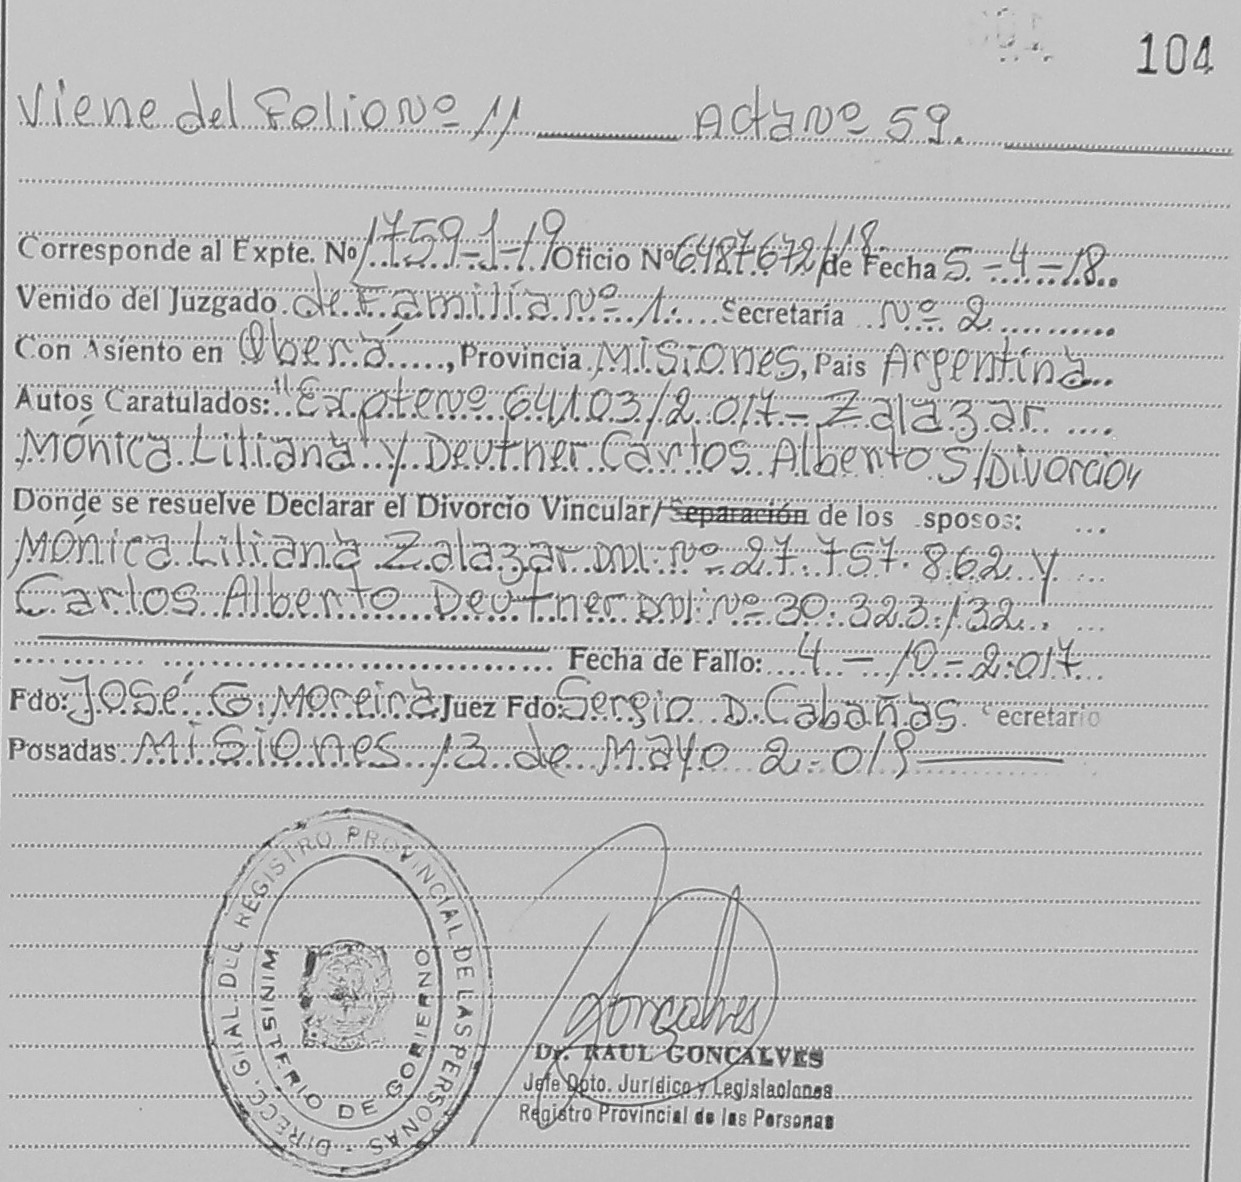 104
Viene del Folio Nº 11 Acta Nº 59.
Corresponde al Expte. Nº 1759-1-19 Oficio Nº 6487672/18 de Fecha 5-4-18
Venido del Juzgado de Familia Nº 1. Secretaría Nº 2
Con Asiento en Oberá, Provincia Misiones, País Argentina
Autos Caratulados: "Expte Nº 64103/2.017 - Zalazar
Mónica Liliana y Deutner Carlos Alberto S/Divorcio"
Donde se resuelve Declarar el Divorcio Vincular/Separación de los sposos:
Mónica Liliana Zalazar DNI Nº 27.757.862 y
Carlos Alberto Deutner DNI Nº 30.323.132
Fecha de Fallo: 4-10-2.017
Fdo: José G. Moreira Juez Fdo: Sergio D. Cabañas Secretario
Posadas Misiones 13 de Mayo 2.019
DIRECC. GRAL. DEL REGISTRO PROVINCIAL DE LAS PERSONAS
MINISTERIO DE GOBIERNO
Goncalves
Dr. RAUL GONCALVES
Jefe Dpto. Jurídico y Legislaciones
Registro Provincial de las Personas